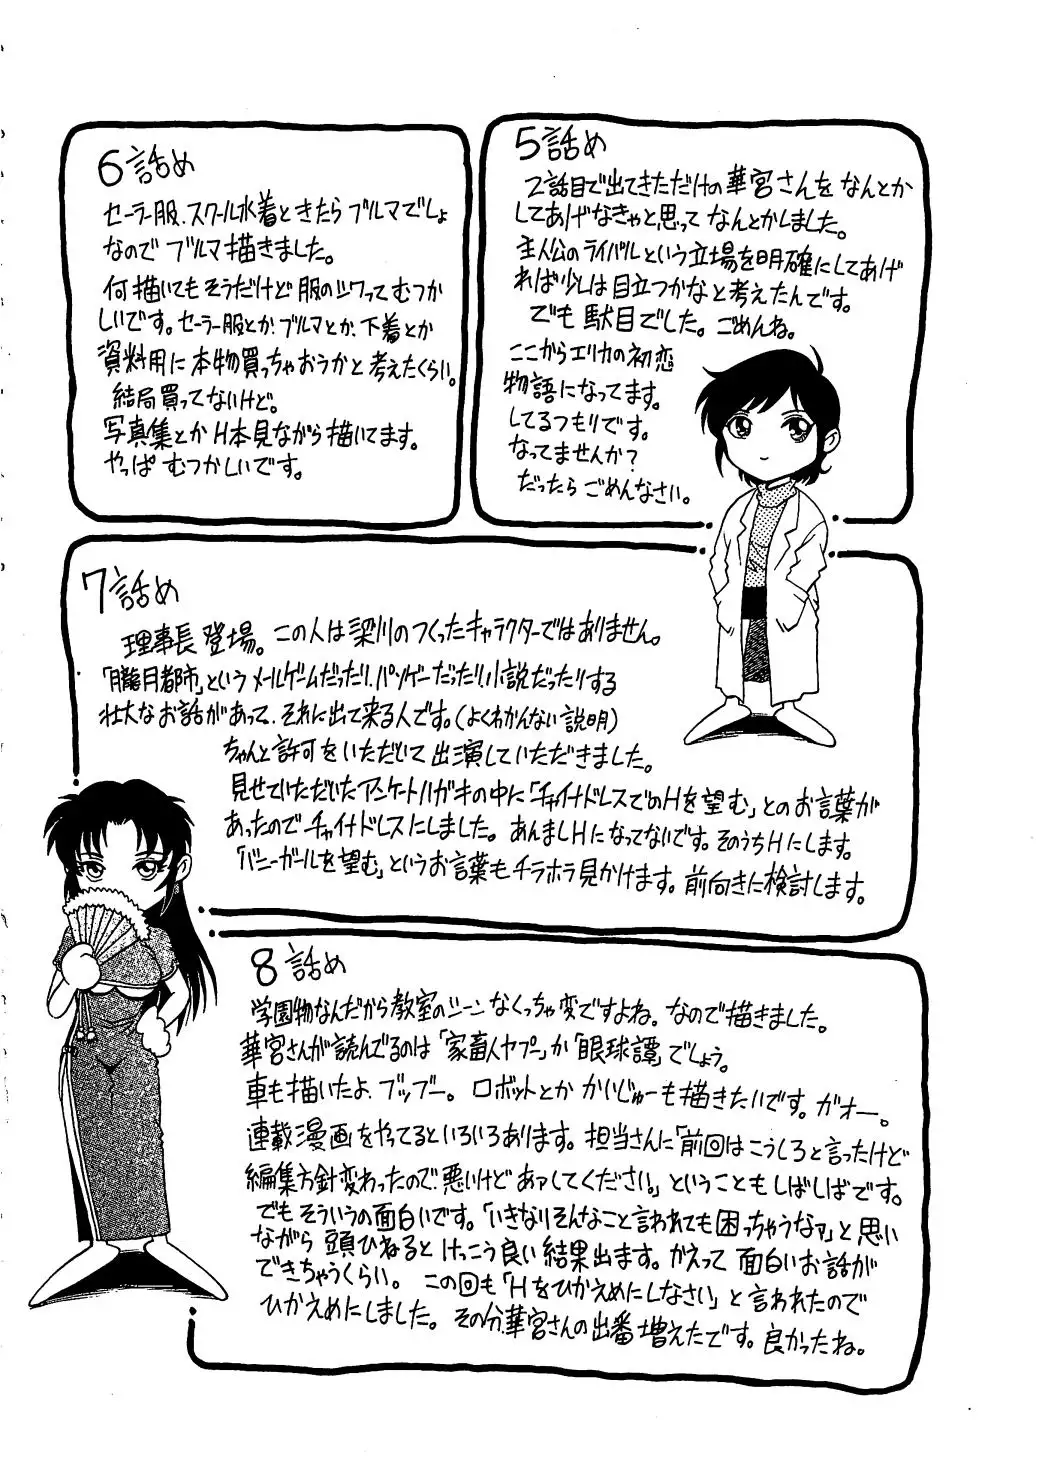 5話め
2話目で出てきただけの華宮さんをなんとか
してあげなきゃと思ってなんとかしました。
主人公のライバルという立場を明確にしてあげ
れば少しは目立つかなと考えたんです。
でも駄目でした。ごめんね。
ここからエリカの初恋
物語になってます。
してるつもりです。
なってませんか?
だったらごめんなさい。
6話め
セーラー服、スクール水着ときたらブルマでしょ
なのでブルマ描きました。
何描いてもそうだけど服のシワってむつか
しいです。セーラー服とか、ブルマとか、下着とか
資料用に本物買っちゃおうかと考えたくらい。
結局買ってないけど。
写真集とかH本見ながら描いてます。
やっぱむつかしいです。
7話め
理事長登場。この人は梁川のつくったキャラクターではありません。
「朧月都市」というメールゲームだったり、パソゲーだったり、小説だったりする
壮大なお話があって、それに出て来る人です。(よくわかんない説明)
ちゃんと許可をいただいて出演していただきました。
見せていただいたアンケートハガキの中に「チャイナドレスでのHを望む」とのお言葉が
あったのでチャイナドレスにしました。あんましHになってないです。そのうちHにします。
「バニーガールを望む」というお言葉もチラホラ見かけます。前向きに検討します。
8話め
学園物なんだから教室のシーンなくっちゃ変ですよね。なので描きました。
華宮さんが読んでるのは「家畜人ヤプー」か「眼球譚」でしょう。
車も描いたよ、ブッブー。ロボットとかかいじゅーも描きたいです。ガオー。
連載漫画をやってるといろいろあります。担当さんに「前回はこうしろと言ったけど
編集方針変わったので悪いけどあァしてください。」ということもしばしばです。
でもそういうの面白いです。「いきなりそんなこと言われても困っちゃうなァ」と思い
ながら頭ひねるとけっこう良い結果出ます。かえって面白いお話が
できちゃうくらい。この回も「Hをひかえめにしなさい」と言われたので
ひかえめにしました。その分華宮さんの出番増えたです。良かったね。